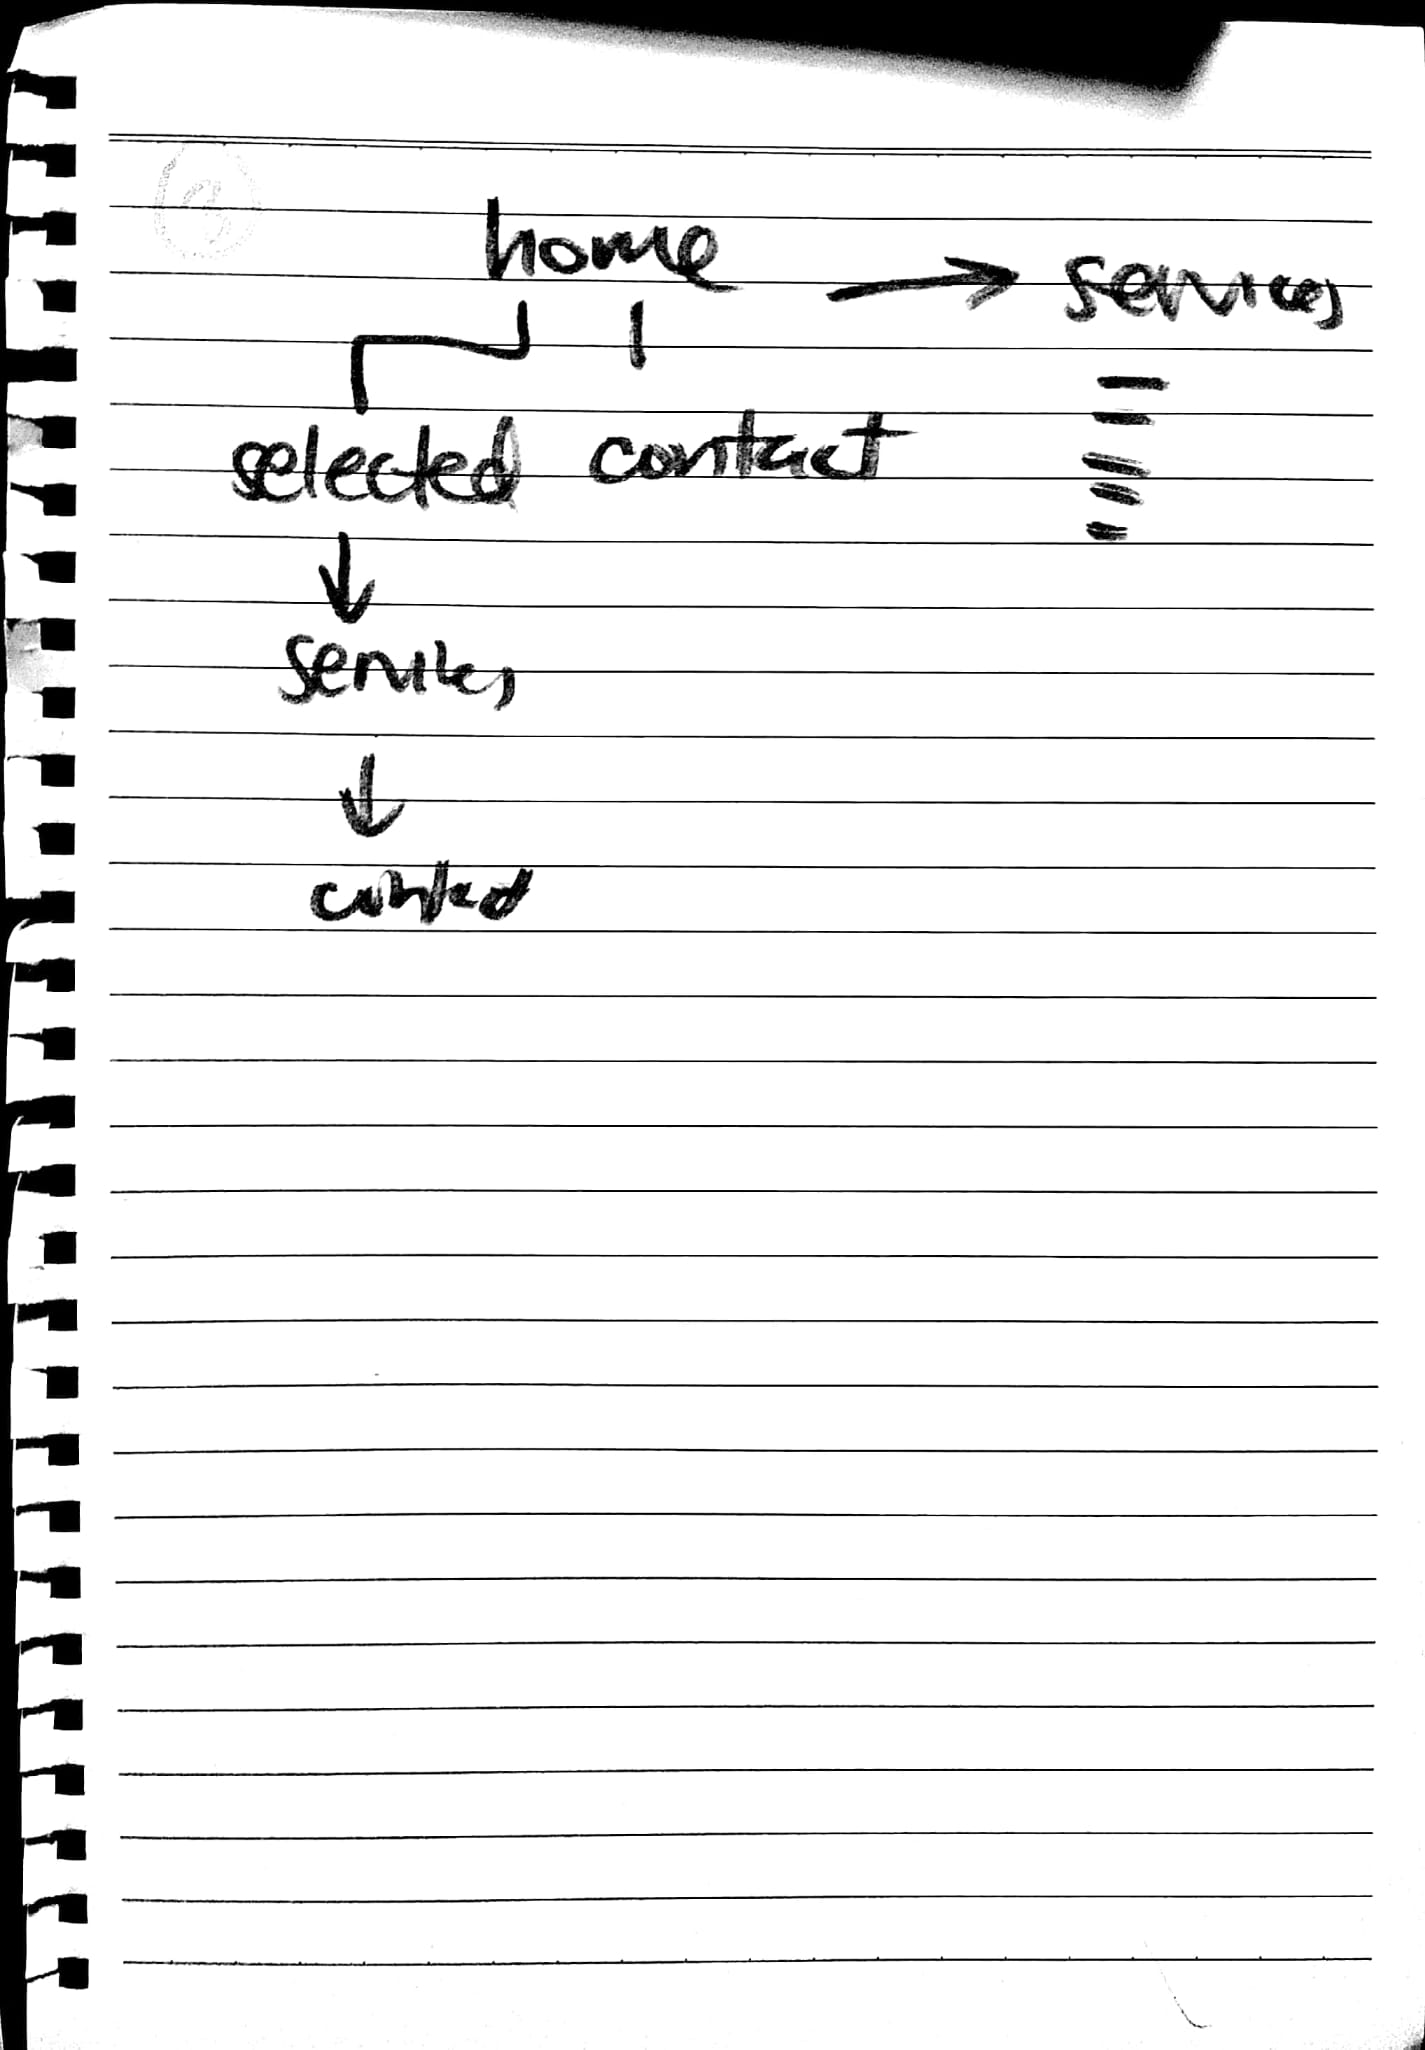 home → services
selected contact
↓
services
↓
contact